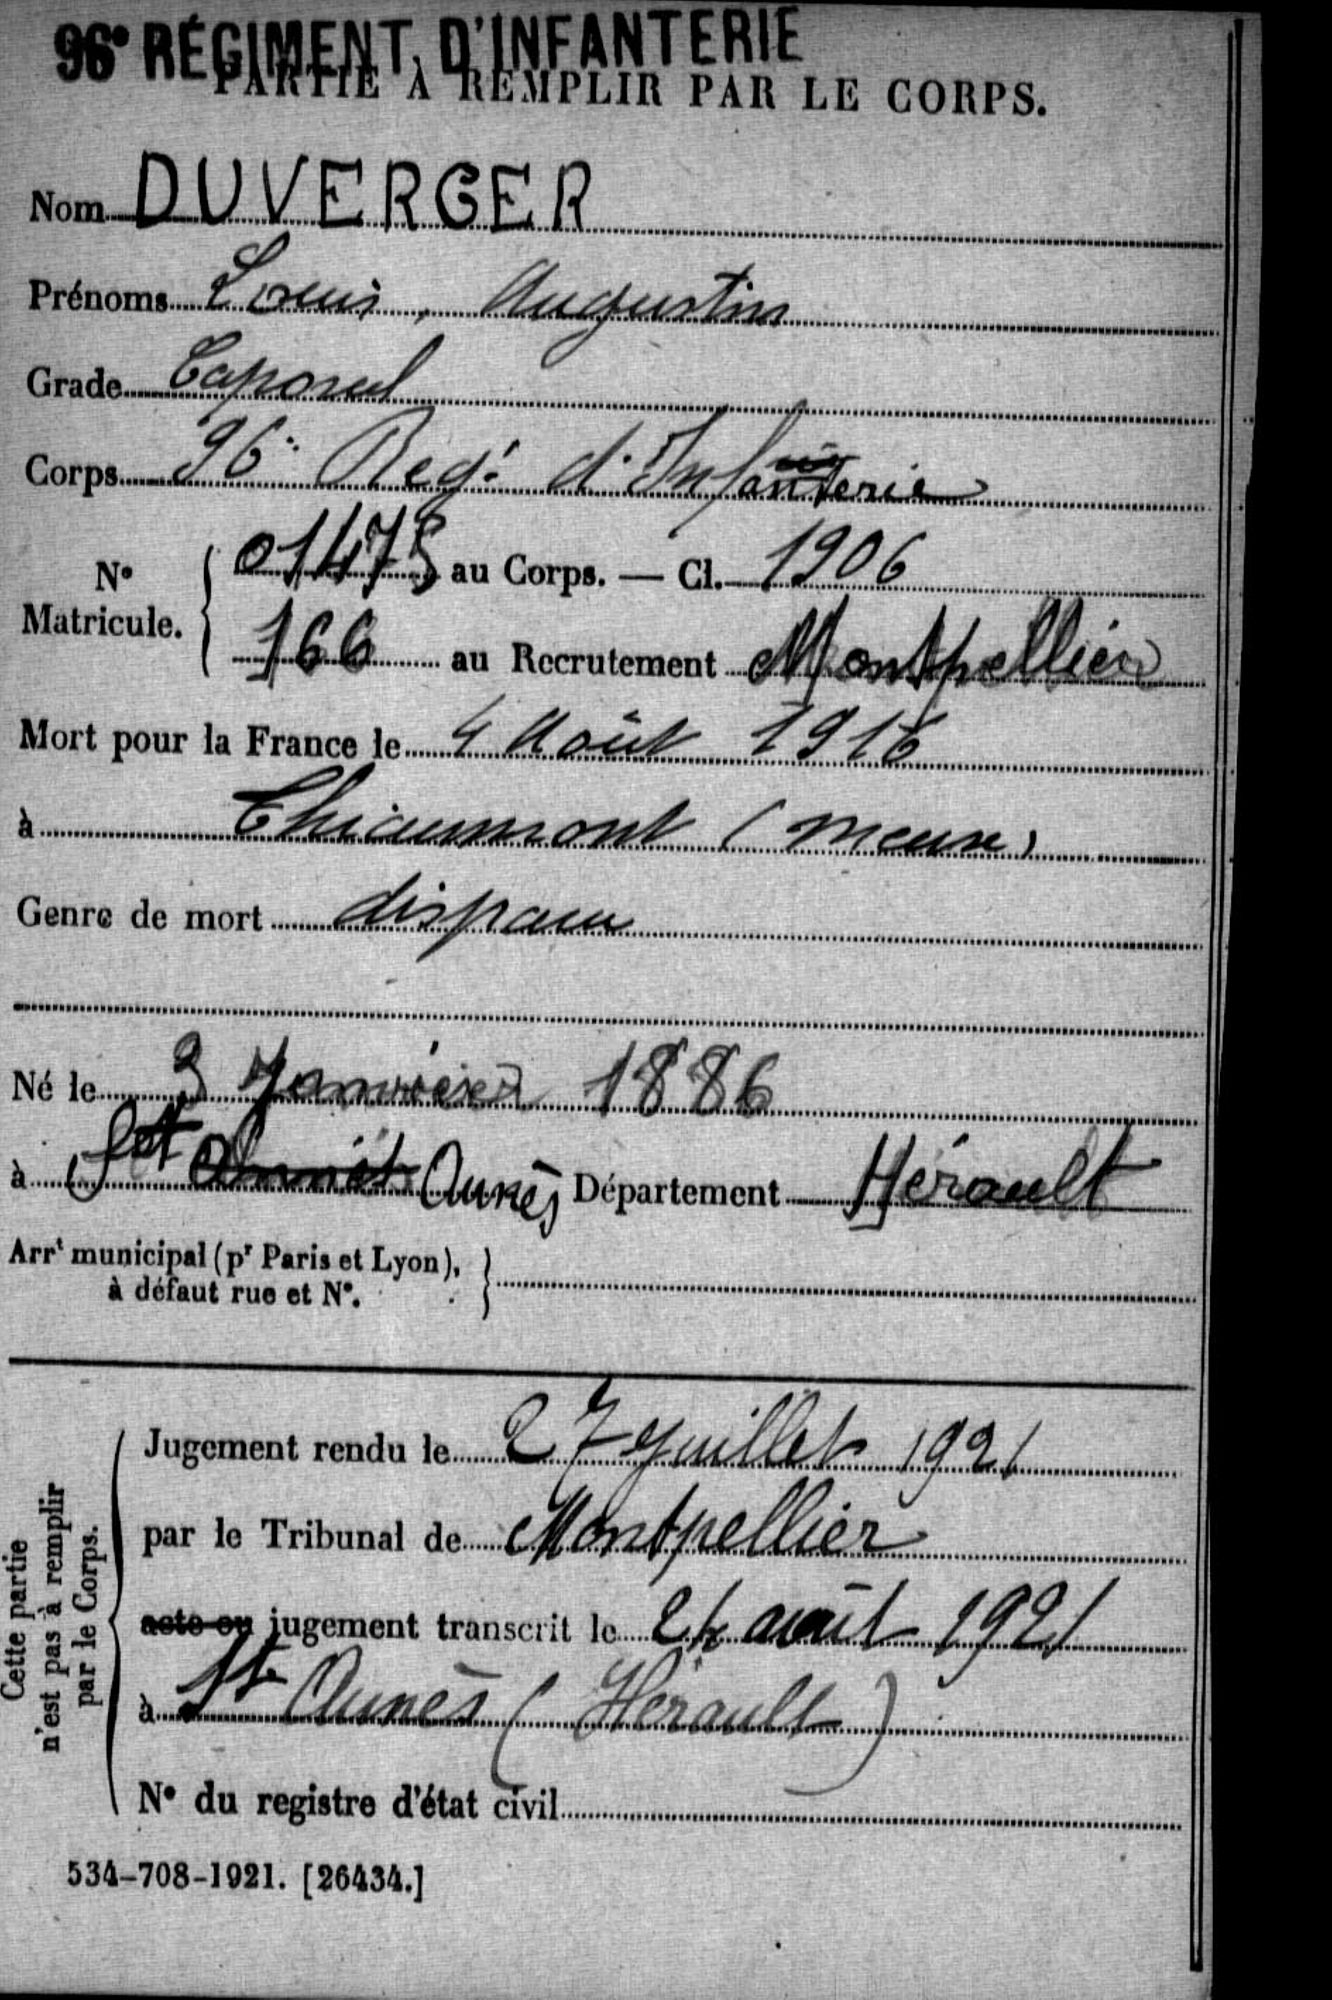 96e RÉGIMENT D'INFANTERIE
PARTIE À REMPLIR PAR LE CORPS.
Nom DUVERGER
Prénoms Louis, Augustin
Grade Caporal
Corps 96e Reg.t d'Infanterie
No Matricule. { 01475 au Corps. — Cl. 1906
166 au Recrutement Montpellier
Mort pour la France le 4 Août 1916
à Thiaumont (Meuse)
Genre de mort disparu
Né le 3 Janvier 1886
à St Aunès Département Hérault
Arrt municipal (pr Paris et Lyon), }
à défaut rue et No.
Cette partie
n'est pas à remplir
par le Corps.
Jugement rendu le 27 Juillet 1921
par le Tribunal de Montpellier
acte ou jugement transcrit le 24 août 1921
à St Aunès (Hérault)
No du registre d'état civil
534-708-1921. [26434.]